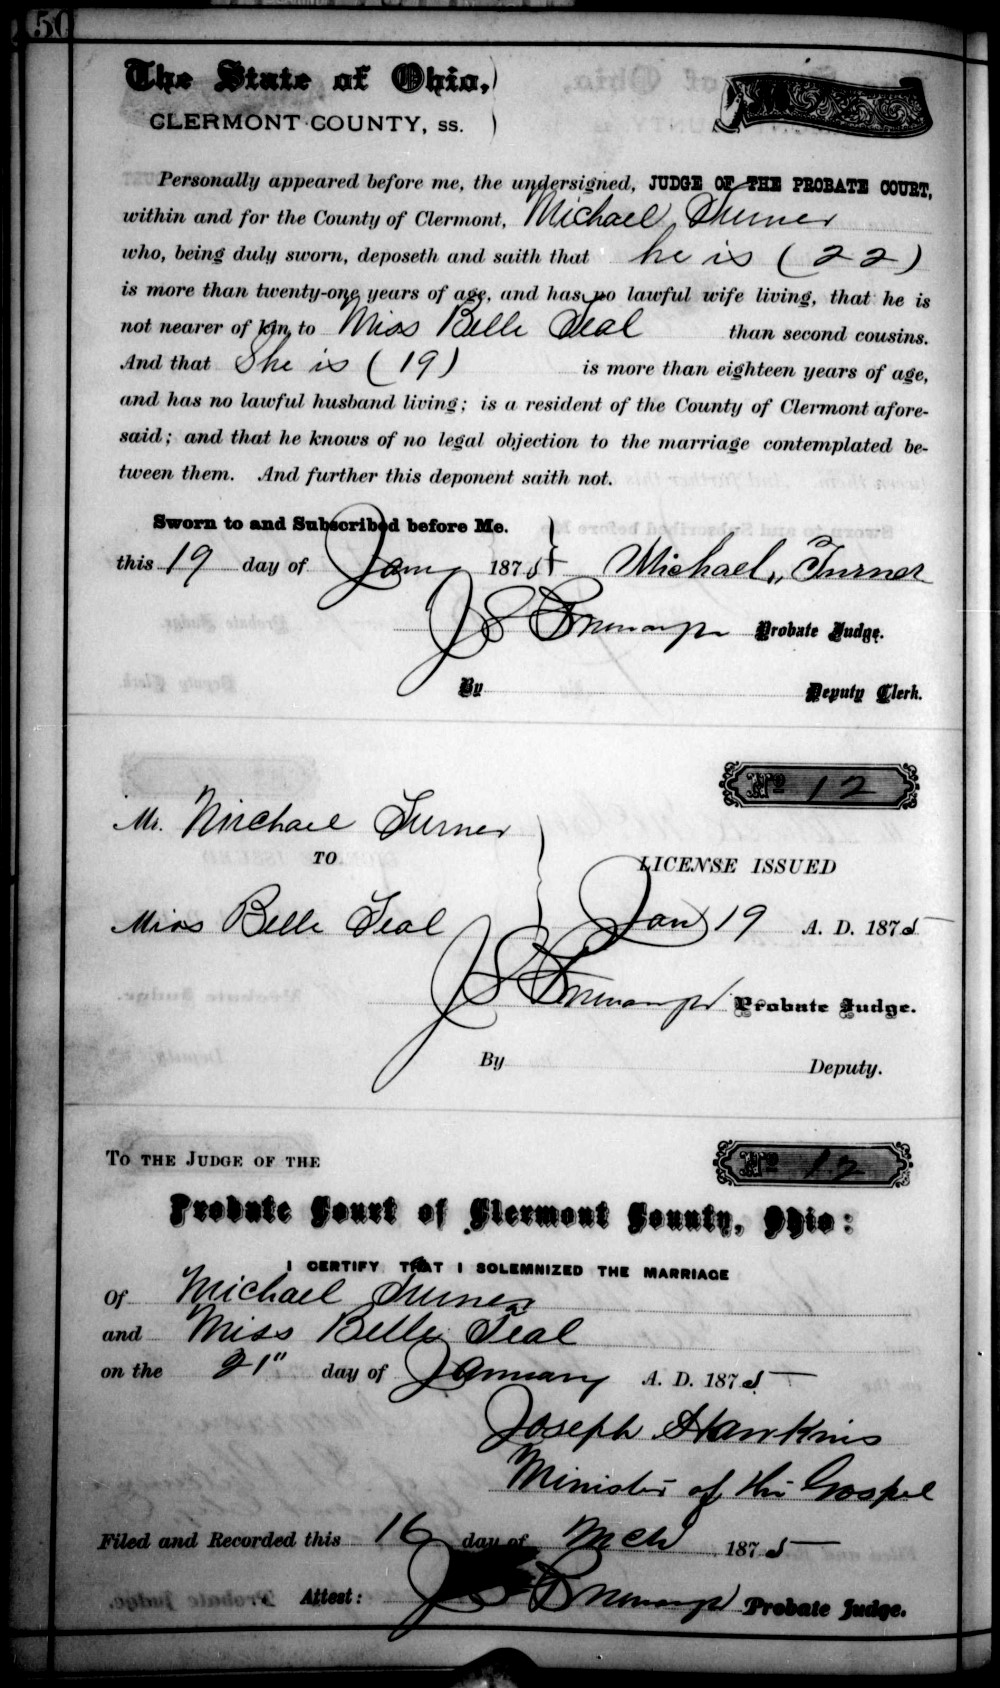 50
The State of Ohio,)
CLERMONT COUNTY, ss. )
Personally appeared before me, the undersigned, JUDGE OF THE PROBATE COURT,
within and for the County of Clermont, Michael Turner
who, being duly sworn, deposeth and saith that he is (22)
is more than twenty-one years of age, and has no lawful wife living, that he is
not nearer of kin to Miss Belle Teal than second cousins.
And that She is (19) is more than eighteen years of age,
and has no lawful husband living; is a resident of the County of Clermont afore-
said; and that he knows of no legal objection to the marriage contemplated be-
tween them. And further this deponent saith not.
Sworn to and Subscribed before Me.
this 19 day of Jany 1875 } Michael Turner
J S Probate Judge.
By Deputy Clerk.
No 12
Mr. Michael Turner
TO
LICENSE ISSUED
Miss Belle Teal } Jan 19 A. D. 1875
J S Probate Judge.
By Deputy.
TO THE JUDGE OF THE
No 12
Probate Court of Clermont County, Ohio:
I CERTIFY THAT I SOLEMNIZED THE MARRIAGE
Of Michael Turner
and Miss Belle Teal
on the 21" day of January A. D. 1875
Joseph Hawkins
Minister of the Gospel
Filed and Recorded this 16 day of Mch 1875
Attest: J S Probate Judge.